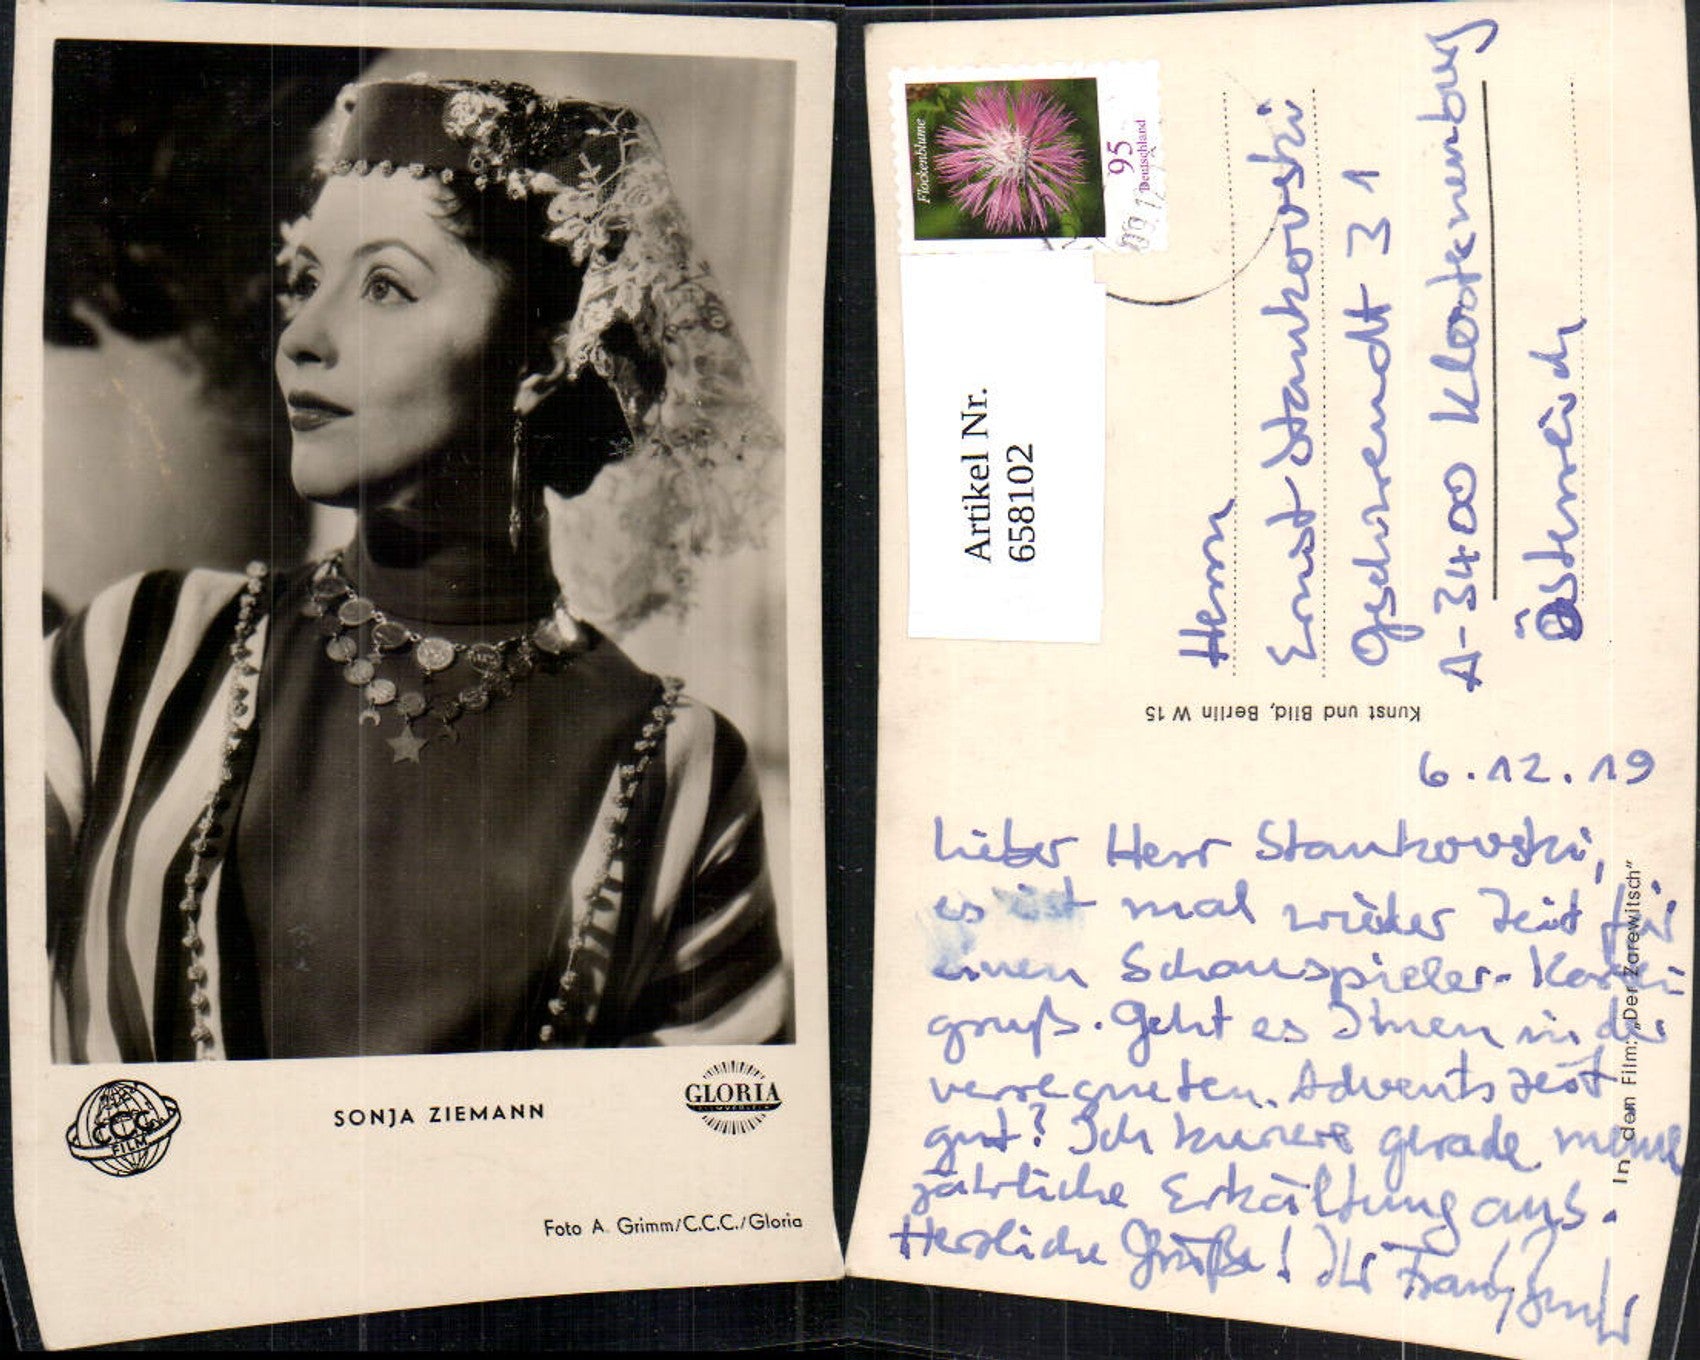 CCC
FILM
SONJA ZIEMANN
GLORIA
FILMVERLEIH
Foto A. Grimm/C.C.C./Gloria
Flockenblume
95
Deutschland
09.12
Artikel Nr.
658102
Herrn
Ernst Stankovski
Gschwendt 31
A-3400 Klosterneuburg
Österreich
Kunst und Bild, Berlin W 15
In dem Film: „Der Zarewitsch“
6.12.19
Lieber Herr Stankovski,
es ist mal wieder Zeit für
einen Schauspieler-Karten
gruß. Geht es Ihnen in der
verregneten Adventszeit
gut? Ich kuriere gerade meine
jährliche Erkältung aus.
Herzliche Grüße! Ihr